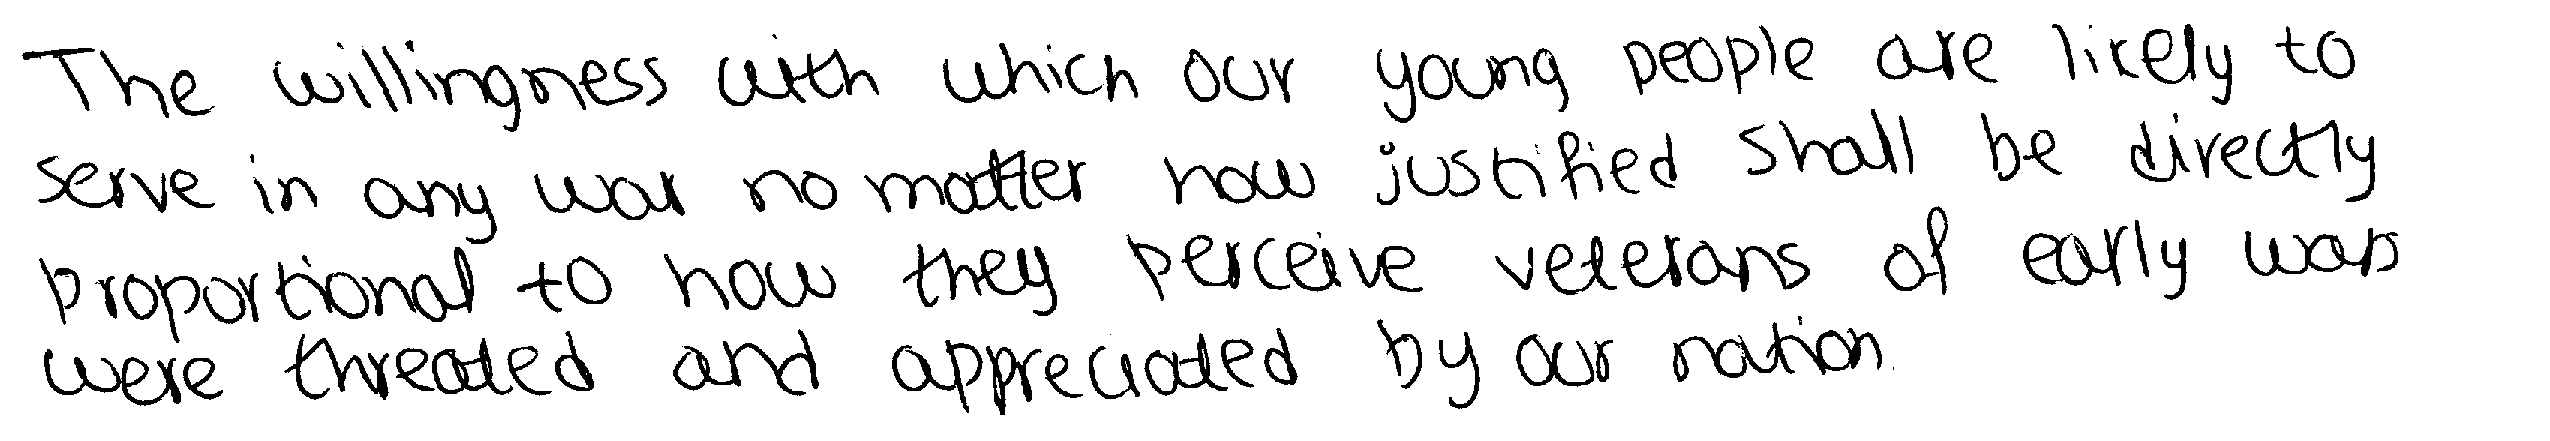 The willingness with which our young people are likely to
serve in any war no matter how justified shall be directly
proportional to how they perceive veterans of early wars
were threated and appreciated by our nation.